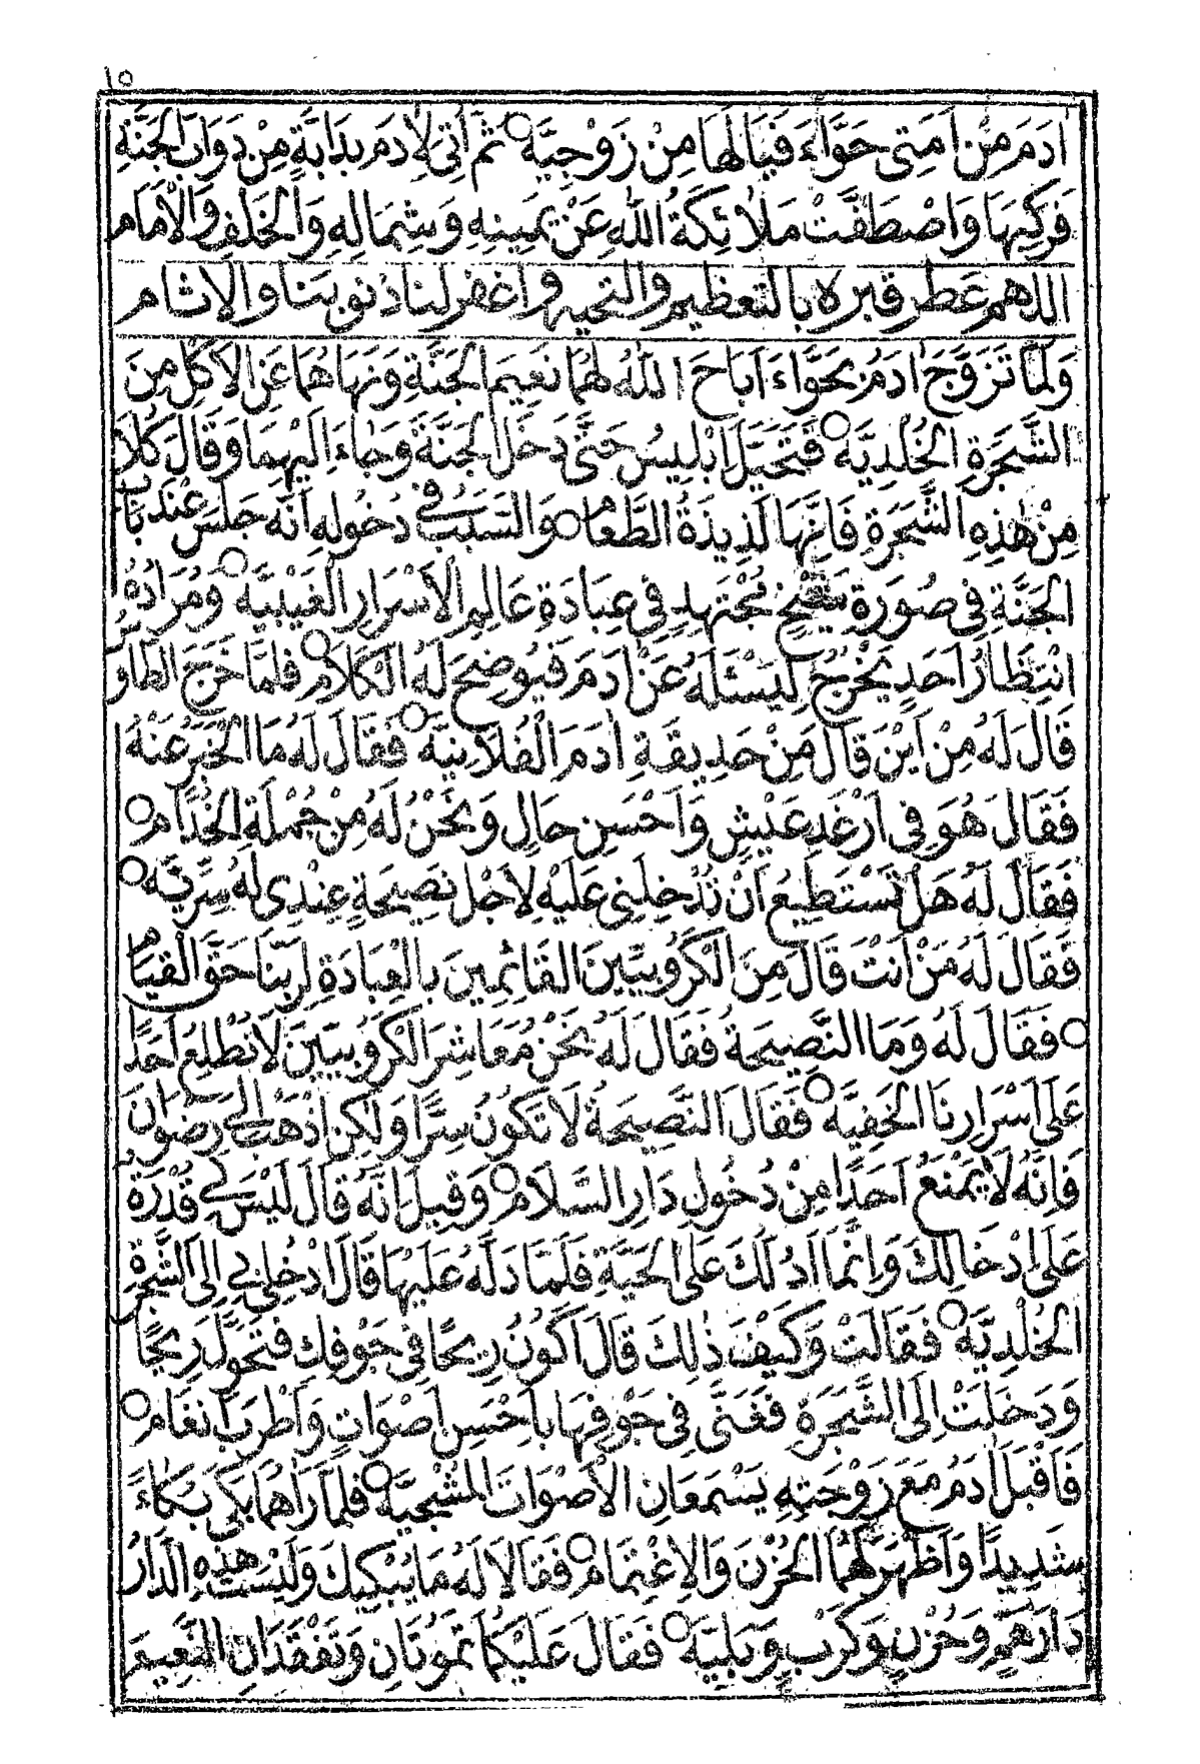 ١٥
اٰدَمَ مِنْ اَمَتِى حَوَّاءَ فَيَالَهَا مِنْ زَوْجِيَّةٍ ۝ ثُمَّ اُتِىَ لِاٰدَمَ بِدَابَّةٍ مِنْ دَوَابِّ الْجَنَّةِ
فَرَكِبَهَا وَاصْطَفَّتْ مَلَائِكَةُ اللّٰهِ عَنْ يَمِينِهِ وَشِمَالِهِ وَالْخَلْفِ وَالْاَمَام
اللهم عطر قبره بالتعظيم والتحيه واغفر لنا ذنوبنا والاثام
وَلَمَّا تَزَوَّجَ اٰدَمُ بِحَوَّاءَ اَبَاحَ اللّٰهُ لَهُمَا نَعِيمَ الْجَنَّةِ وَنَهَاهُمَا عَنِ الْاَكْلِ مِنَ
الشَّجَرَةِ الْخُلْدِيَّه ۝ فَتَحَيَّلَ اِبْلِيسُ حَتَّى دَخَلَ الْجَنَّةَ وَجَاءَ اِلَيْهِمَا وَقَالَ كُلَا
مِنْ هٰذِهِ الشَّجَرَةِ فَاِنَّهَا لَذِيذَةُ الطَّعَام ۝ وَالسَّبَبُ فِى دُخُولِهِ اَنَّهُ جَلَسَ عِنْدَ بَابِ
الْجَنَّةِ فِى صُورَةِ شَيْخٍ مُجْتَهِدٍ فِى عِبَادَةِ عَالِمِ الْاَسْرَارِ الْغَيْبِيَّه ۝ وَمُرَادُهُ
انْتِظَارُ اَحَدٍ يَخْرُجُ لِيَسْئَلَهُ عَنْ اٰدَمَ فَيُوضِحَ لَهُ الْكَلَام ۝ فَلَمَّا خَرَجَ الطَّاوُسُ
قَالَ لَهُ مِنْ اَيْنَ قَالَ مِنْ حَدِيقَةِ اٰدَمَ الْفُلَانِيَّه ۝ فَقَالَ لَهُ مَا الْخَبَرُ عَنْهُ
فَقَالَ هُوَ فِى اَرْغَدِ عَيْشٍ وَاَحْسَنِ حَالٍ وَنَحْنُ لَهُ مِنْ جُمْلَةِ الْخُدَّام ۝
فَقَالَ لَهُ هَلْ تَسْتَطِيعُ اَنْ تُدْخِلَنِى عَلَيْهِ لِاَجْلِ نَصِيحَةٍ عِنْدِى لَهُ سِرِّيَّه ۝
فَقَالَ لَهُ مَنْ اَنْتَ قَالَ مِنَ الْكَرُوبِيِّينَ الْقَائِمِينَ بِالْعِبَادَةِ لِرَبِّنَا حَقَّ الْقِيَام
۝ فَقَالَ لَهُ وَمَا النَّصِيحَةُ فَقَالَ لَهُ نَحْنُ مَعَاشِرَ الْكَرُوبِيِّينَ لَا نُطْلِعُ اَحَدًا
عَلَى اَسْرَارِنَا الْخَفِيَّه ۝ فَقَالَ النَّصِيحَةُ لَا تَكُونُ سِرًّا وَلٰكِنْ اذْهَبْ اِلَى رِضْوَانَ
فَاِنَّهُ لَا يَمْنَعُ اَحَدًا مِنْ دُخُولِ دَارِ السَّلَام ۝ وَقِيلَ اِنَّهُ قَالَ لَيْسَ لِى قُدْرَةٌ
عَلَى اِدْخَالِكَ وَاِنَّمَا اَدُلُّكَ عَلَى الْحَيَّةِ فَلَمَّا دَلَّهُ عَلَيْهَا قَالَ ادْخُلِى بِى اِلَى الشَّجَرَةِ
الْخُلْدِيَّه ۝ فَقَالَتْ وَكَيْفَ ذٰلِكَ قَالَ اَكُونُ رِيحًا فِى جَوْفِكِ فَتَحَوَّلَ رِيحًا
وَدَخَلَتْ اِلَى الشَّجَرَةِ فَغَنَّى فِى جَوْفِهَا بِاَحْسَنِ اَصْوَاتٍ وَاَطْرَبِ اَنْغَام ۝
فَاَقْبَلَ اٰدَمُ مَعَ زَوْجَتِهِ يَسْمَعَانِ الْاَصْوَاتَ الْمُشْجِيَّه ۝ فَلَمَّا رَاٰهُمَا بَكَى بُكَاءً
شَدِيدًا وَاَظْهَرَ لَهُمَا الْحُزْنَ وَالْاِغْتِمَام ۝ فَقَالَا لَهُ مَا يُبْكِيكَ وَلَيْسَتْ هٰذِهِ الدَّارُ
دَارَ هَمٍّ وَحُزْنٍ وَكَرْبٍ وَبَلِيَّه ۝ فَقَالَ عَلَيْكُمَا تَمُوتَانِ وَتَفْقِدَانِ النَّعِيمَ